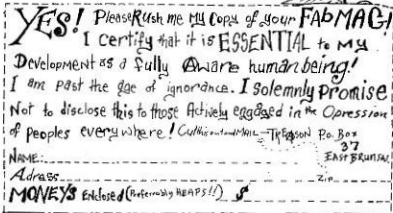 YES! Please Rush me My Copy of your FAbMAG!
I certify that it is ESSENTIAL to MY
Development as a fully Aware human being!
I am past the age of ignorance. I Solemnly Promise
Not to disclose this to those Actively engaged in the Opression
of peoples everywhere! Cut this out and MAIL — TREASON P.o. Box
37
NAME: EAST BRUNSW.
Adress Zip
MONEYS Enclosed (Preferrably HEAPS!!) $